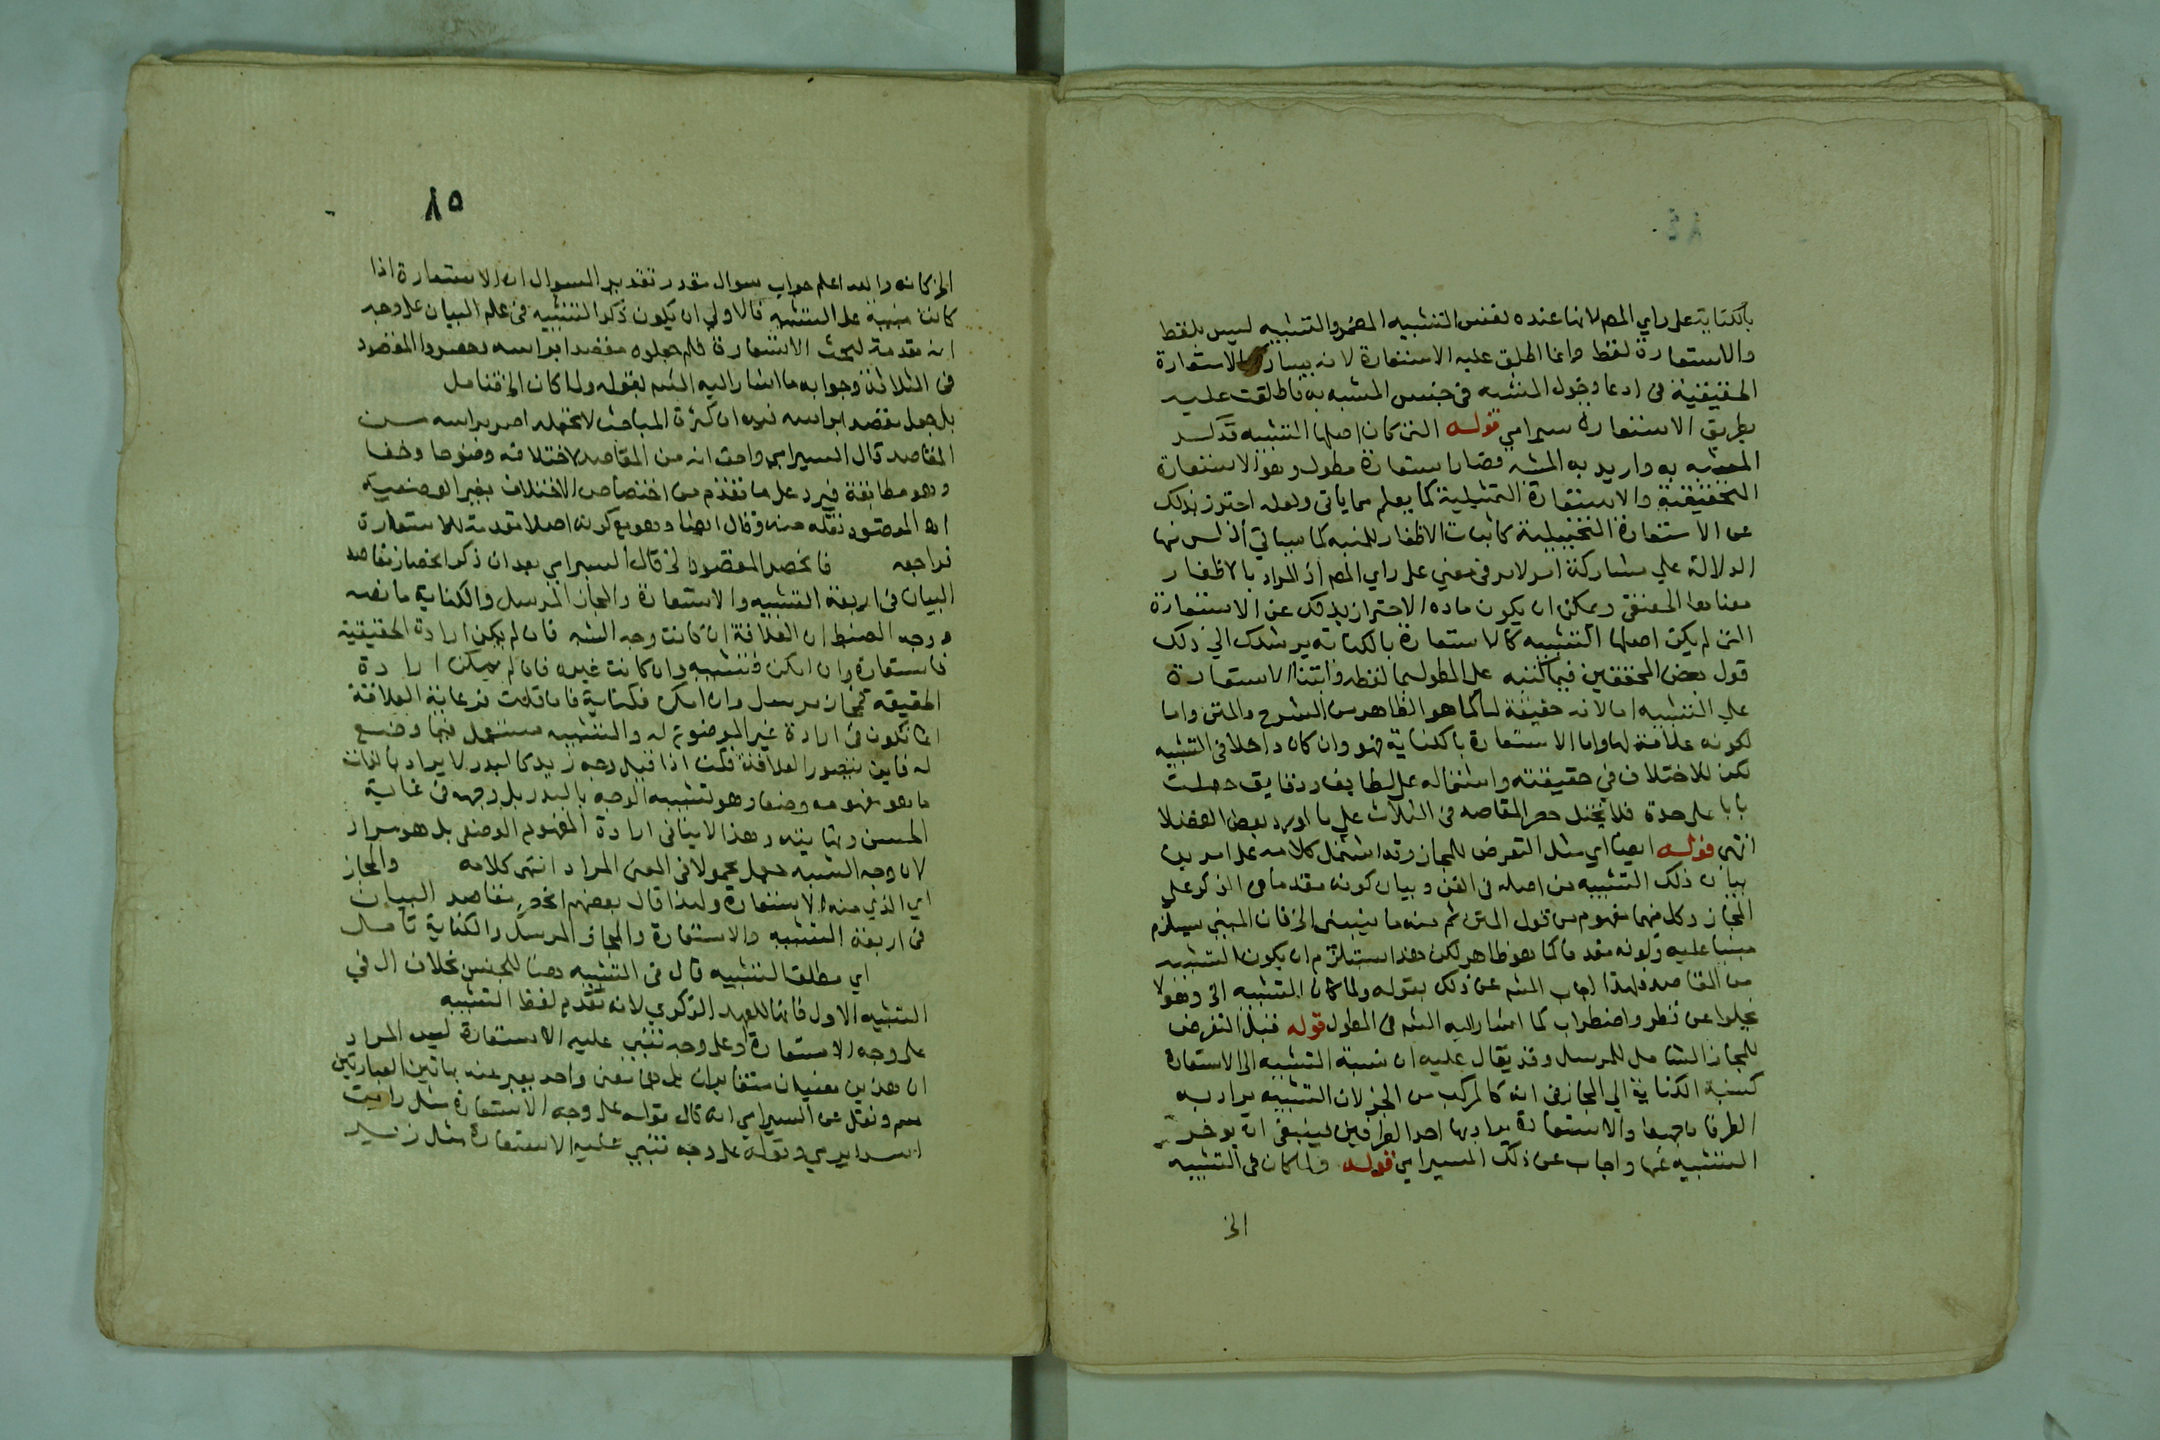 ٨٤
بالكناية على راي المص لانها عنده نفس التشبيه المضمر والتشبيه ليس بلفظ
والاستعارة لفظ وانما اطلق عليه الاستعارة لانه الاستعارة
الحقيقية في ادعا دخول المشبه في جنس المشبه به فاطلقت عليه
بطريق الاستعارة سيرامي قوله التي كان اصلها التشبيه فذكر
المشبه به واريد به المشبه فصار استعارة مطول وهو الاستعارة
التحقيقية والاستعارة التمثيلية كما يعلم مما ياتي ولعله احترز بذلك
عن الاستعارة التخييلية كاثبات الاظفار للمنية كما سياتي اذ ليس فيها
الدلالة على مشاركة امر لامر في معني على راي المص اذ المراد بالاظفار
معناها الحقيقي ويمكن ان يكون ماده الاحتراز بذلك عن الاستعارة
التي لم يكن اصلها التشبيه كالاستعارة بالكناية يرشدك الي ذلك
قول بعض المحققين فيما كتبه على المطول بما لفظه وابتنا الاستعارة
علي التشبيه اما لانه حقيقة لها كما هو الظاهر من الشرح والمتن واما
لكونه علاقة لها واما الاستعارة بالكناية فهو وان كان داخلا في التشبيه
لكن للاختلاف في حقيقته واشتماله على لطايف ودقايق جعلت
بابا على حدة فلا يختل حصر المقاصد في الثلاث علي ما اورد بعض الفضلا
انتهى قوله ايضا اي مثل التعرض للمجاز وقد اشتمل كلامه على امرين
بيان ذلك التشبيه من اصله في الفن وبيان كونه مقدما في الذكر علي
المجاز وكل منهما مفهوم من قول المتن ثم منه ما يبتنى الخ فان المبنى يستلزم
مبنيا عليه وكونه مقدما كما هو ظاهر لكن هذا يستلزم ان يكون التشبيه
من المقاصد فلهذا اجاب الشم عن ذلك بقوله ولما كان التشبيه الخ وهو لا
يخلوا عن نظر واضطراب كما اشار اليه الشم في المطول قوله قبل التعرض
للمجاز الشامل للمرسل وقد يقال عليه ان نسبة التشبيه الى الاستعارة
كنسبة الكناية الي المجاز في انه كالمركب من الجزء لان التشبيه يراد به
الطرفان جميعا والاستعارة يراد بها احد الطرفين فينبغي ان يوخر
التشبيه عنها واجاب عن ذلك السيرامي قوله ولما كان في التشبيه
الخ
٨٥
الخ كانه والله اعلم جواب سوال مقدر تقدير السوال ان الاستعارة اذا
كانت مبنية على التشبيه فالاولي ان يكون ذكر التشبيه في علم البيان على وجه
انه مقدمة لبحث الاستعارة فلم جعلوه مقصدا براسه وحصروا المقصود
في الثلاثة وجوابه ما اشار اليه الشم بقوله ولما كان الخ فتامل
بل جعل مقصدا براسه فيه ان كثرة المباحث لا تجعله امر براسه من
المقاصد قال السيرامي والحق انه من المقاصد لاختلافه وضوحا وخفا
وهو مطابقة فيرد على ما تقدم من اختصاص الاختلاف بغير الوضعية
اهـ المقصود نقله منه وقال ايضا وهو مع كونه اصلا مقدمة للاستعارة
فراجعه فانحصر المقصود الخ قال السيرامي بعد ان ذكر انحصار مقاصد
البيان في اربعة التشبيه والاستعارة والمجاز المرسل والكناية ما نصه
ووجه الضبط ان العلاقة ان كانت وجه الشبه فان لم يكن ارادة الحقيقية
فاستعارة وان امكن فتشبيه وان كانت غيره فان لم يمكن ارادة
الحقيقة فمجاز مرسل وان امكن فكناية فان قلت رعاية العلاقة
انما تكون في ارادة غير الموضوع له والتشبيه مستعمل فيما وضع
له فاين يتصور العلاقة قلت اذا قيل وجه زيد كالبدر لا يراد بالذات
ما هو مفهومه وضعا وهو تشبيه الوجه بالبدر بل وجهه في غاية
الحسن ونهايته وهذا لا ينافى ارادة المفهوم الوضعي بل هو مراد
لان وجه الشبه جعل محمولا في المعنى المراد انتهى كلامه والمجاز
اي الذي منه الاستعارة ولذا قال بعضهم انحصر مقاصد البيان
في اربعة التشبيه والاستعارة والمجاز المرسل والكناية تامل
اي مطلق التشبيه قال في التشبيه هنا للجنس بخلاف ال في
التشبيه الاول فانها للعهد الذكري لانه تقدم لفظ التشبيه
على وجه الاستعارة او على وجه تبتنى عليه الاستعارة ليس المراد
ان هذين معنيان متغايران بل هما معنى واحد يعبر عنه بهاتين العبارتين
سم ونقل عن السيرامي انه قال قوله على وجه الاستعارة مثل رايت
اسدا يرمي وقوله على وجه تبتنى عليه الاستعارة مثل زيد